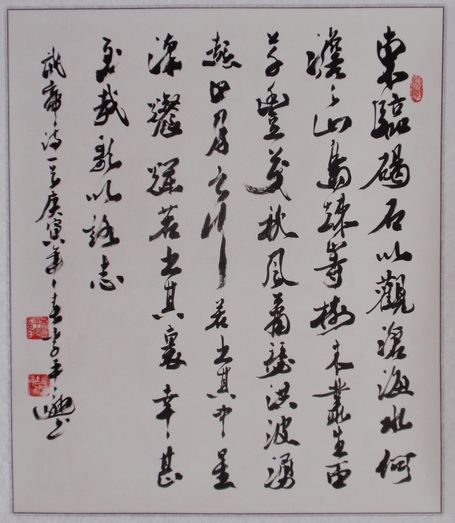 東臨碣石以觀滄海水何
澹々山島竦峙樹木叢生百
草豐茂秋風蕭瑟洪波湧
起日月之行若出其中星
漢燦爛若出其裏幸甚
至哉歌以詠志
武帝詩一首庚寅年春書